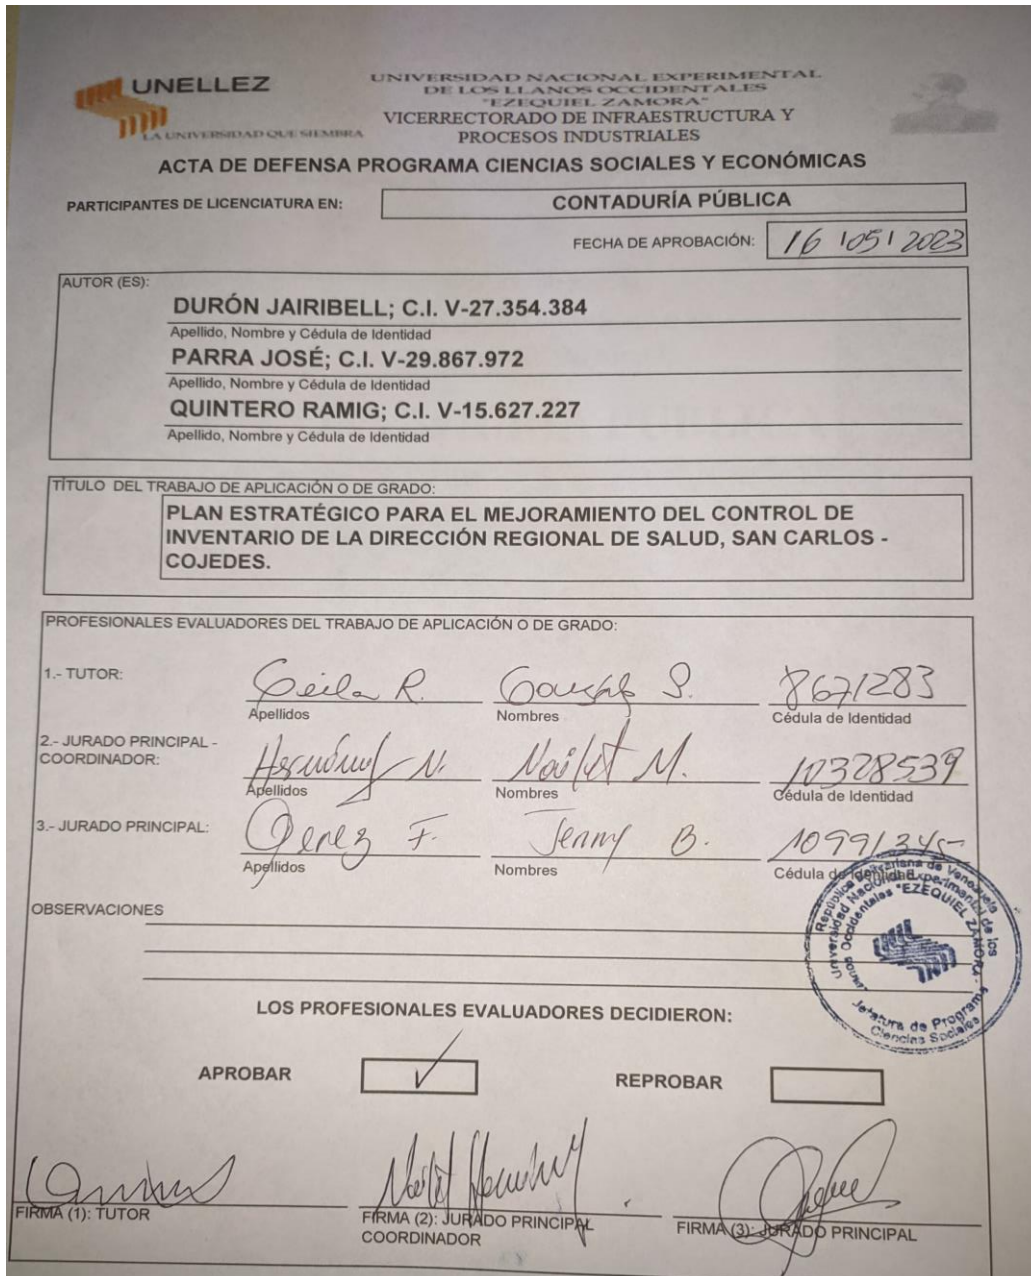 UNELLEZ
LA UNIVERSIDAD QUE SIEMBRA
UNIVERSIDAD NACIONAL EXPERIMENTAL
DE LOS LLANOS OCCIDENTALES
"EZEQUIEL ZAMORA"
VICERRECTORADO DE INFRAESTRUCTURA Y
PROCESOS INDUSTRIALES
ACTA DE DEFENSA PROGRAMA CIENCIAS SOCIALES Y ECONÓMICAS
PARTICIPANTES DE LICENCIATURA EN: CONTADURÍA PÚBLICA
FECHA DE APROBACIÓN: 16 105 1 2023
AUTOR (ES):
DURÓN JAIRIBELL; C.I. V-27.354.384
Apellido, Nombre y Cédula de Identidad
PARRA JOSÉ; C.I. V-29.867.972
Apellido, Nombre y Cédula de Identidad
QUINTERO RAMIG; C.I. V-15.627.227
Apellido, Nombre y Cédula de Identidad
TÍTULO DEL TRABAJO DE APLICACIÓN O DE GRADO:
PLAN ESTRATÉGICO PARA EL MEJORAMIENTO DEL CONTROL DE
INVENTARIO DE LA DIRECCIÓN REGIONAL DE SALUD, SAN CARLOS -
COJEDES.
PROFESIONALES EVALUADORES DEL TRABAJO DE APLICACIÓN O DE GRADO:
1.- TUTOR: R. S. 8671283
Apellidos Nombres Cédula de Identidad
2.- JURADO PRINCIPAL -
COORDINADOR: N. M. 10328539
Apellidos Nombres Cédula de Identidad
3.- JURADO PRINCIPAL: F. Jenny B. 10991345
Apellidos Nombres Cédula de Identidad
OBSERVACIONES
República Bolivariana de Venezuela
Universidad Nacional Experimental de los
Llanos Occidentales "EZEQUIEL ZAMORA"
Jefatura de Programa
Ciencias Sociales
LOS PROFESIONALES EVALUADORES DECIDIERON:
APROBAR REPROBAR
FIRMA (1): TUTOR
FIRMA (2): JURADO PRINCIPAL
COORDINADOR
FIRMA (3): JURADO PRINCIPAL